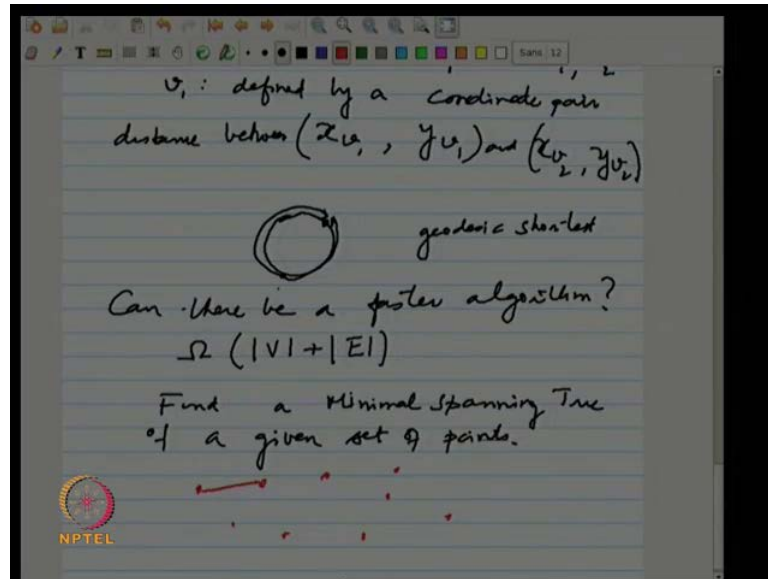 T Sans 12
v₁ : defined by a coordinate pair
distance between (x_v₁ , y_v₁) and (x_v₂ , y_v₂)
geodesic shortest
Can there be a faster algorithm?
Ω (|V| + |E|)
Find a Minimal Spanning Tree
of a given set of points.
NPTEL